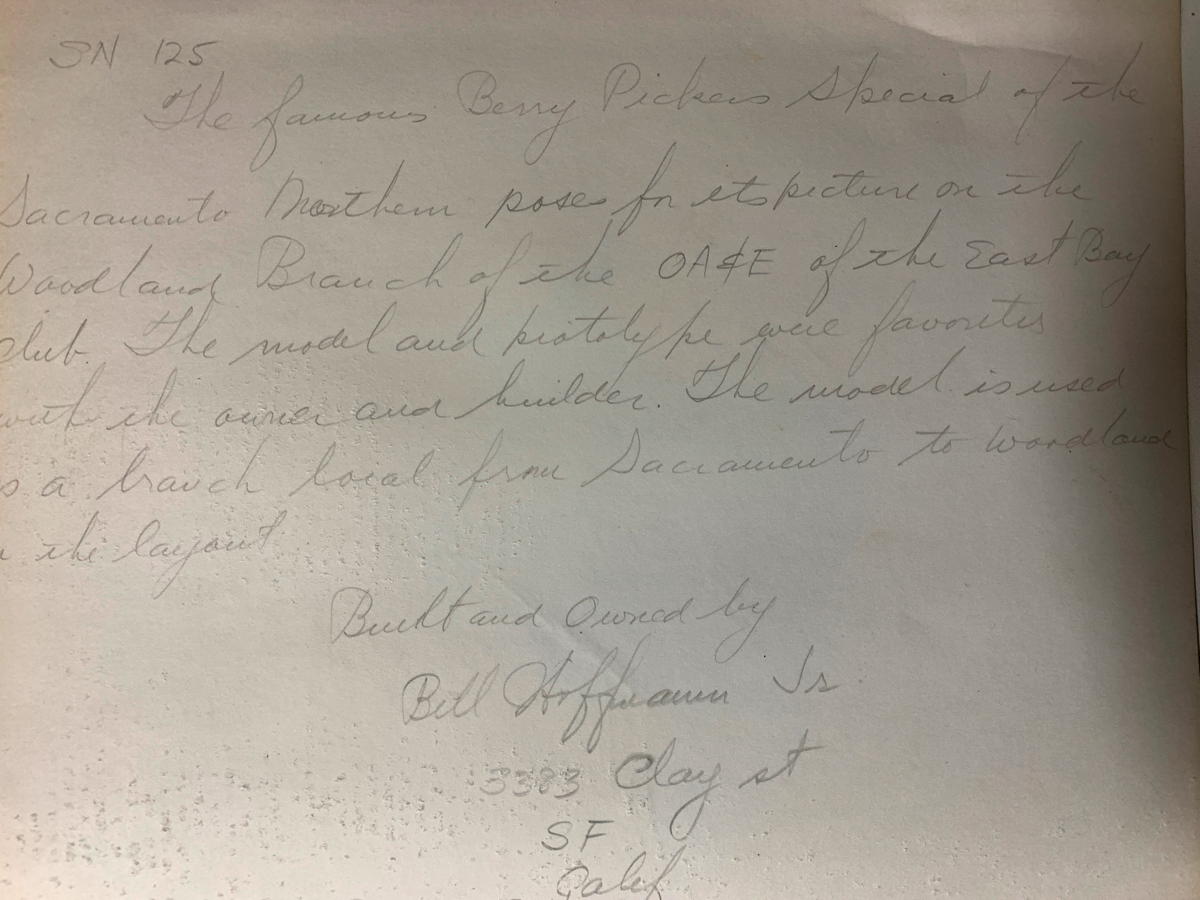 SN 125
The famous Berry Pickers Special of the
Sacramento Northern poses for its picture on the
Woodland Branch of the OA&E of the East Bay
club. The model and prototype were favorites
with the owner and builder. The model is used
as a branch local from Sacramento to Woodland
the layout
Built and Owned by
Bill Hoffmann Jr.
3383 Clay st
SF
Calif